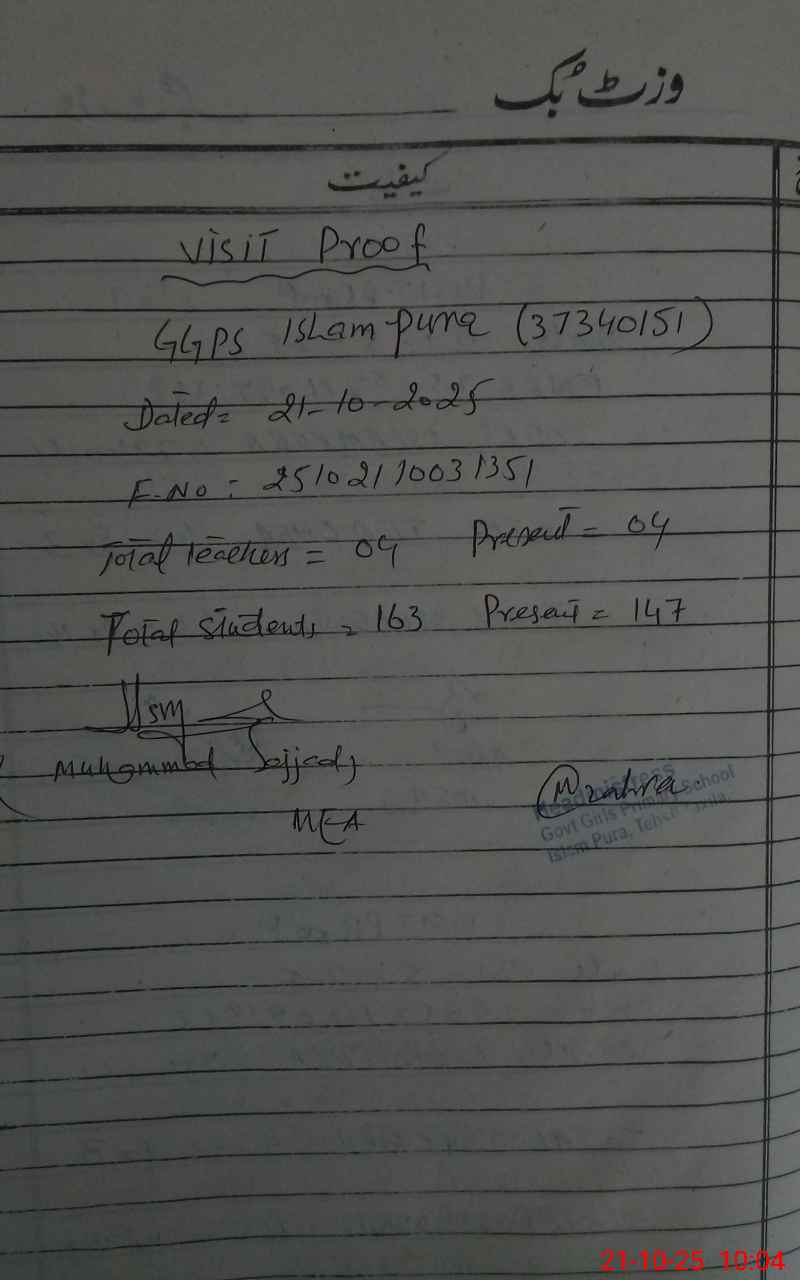 وزٹ بُک
کیفیت
Visit Proof
GGPS Islam pura (37340151)
Dated= 21-10-2025
F.No: 2510211003 1351
Total teachers = 04 Present = 04
Total students = 163 Present = 147
Muhammad Sajjad,
MEA
Headmistress
Govt Girls Primary School
Islam Pura,
21-10-25 10:04